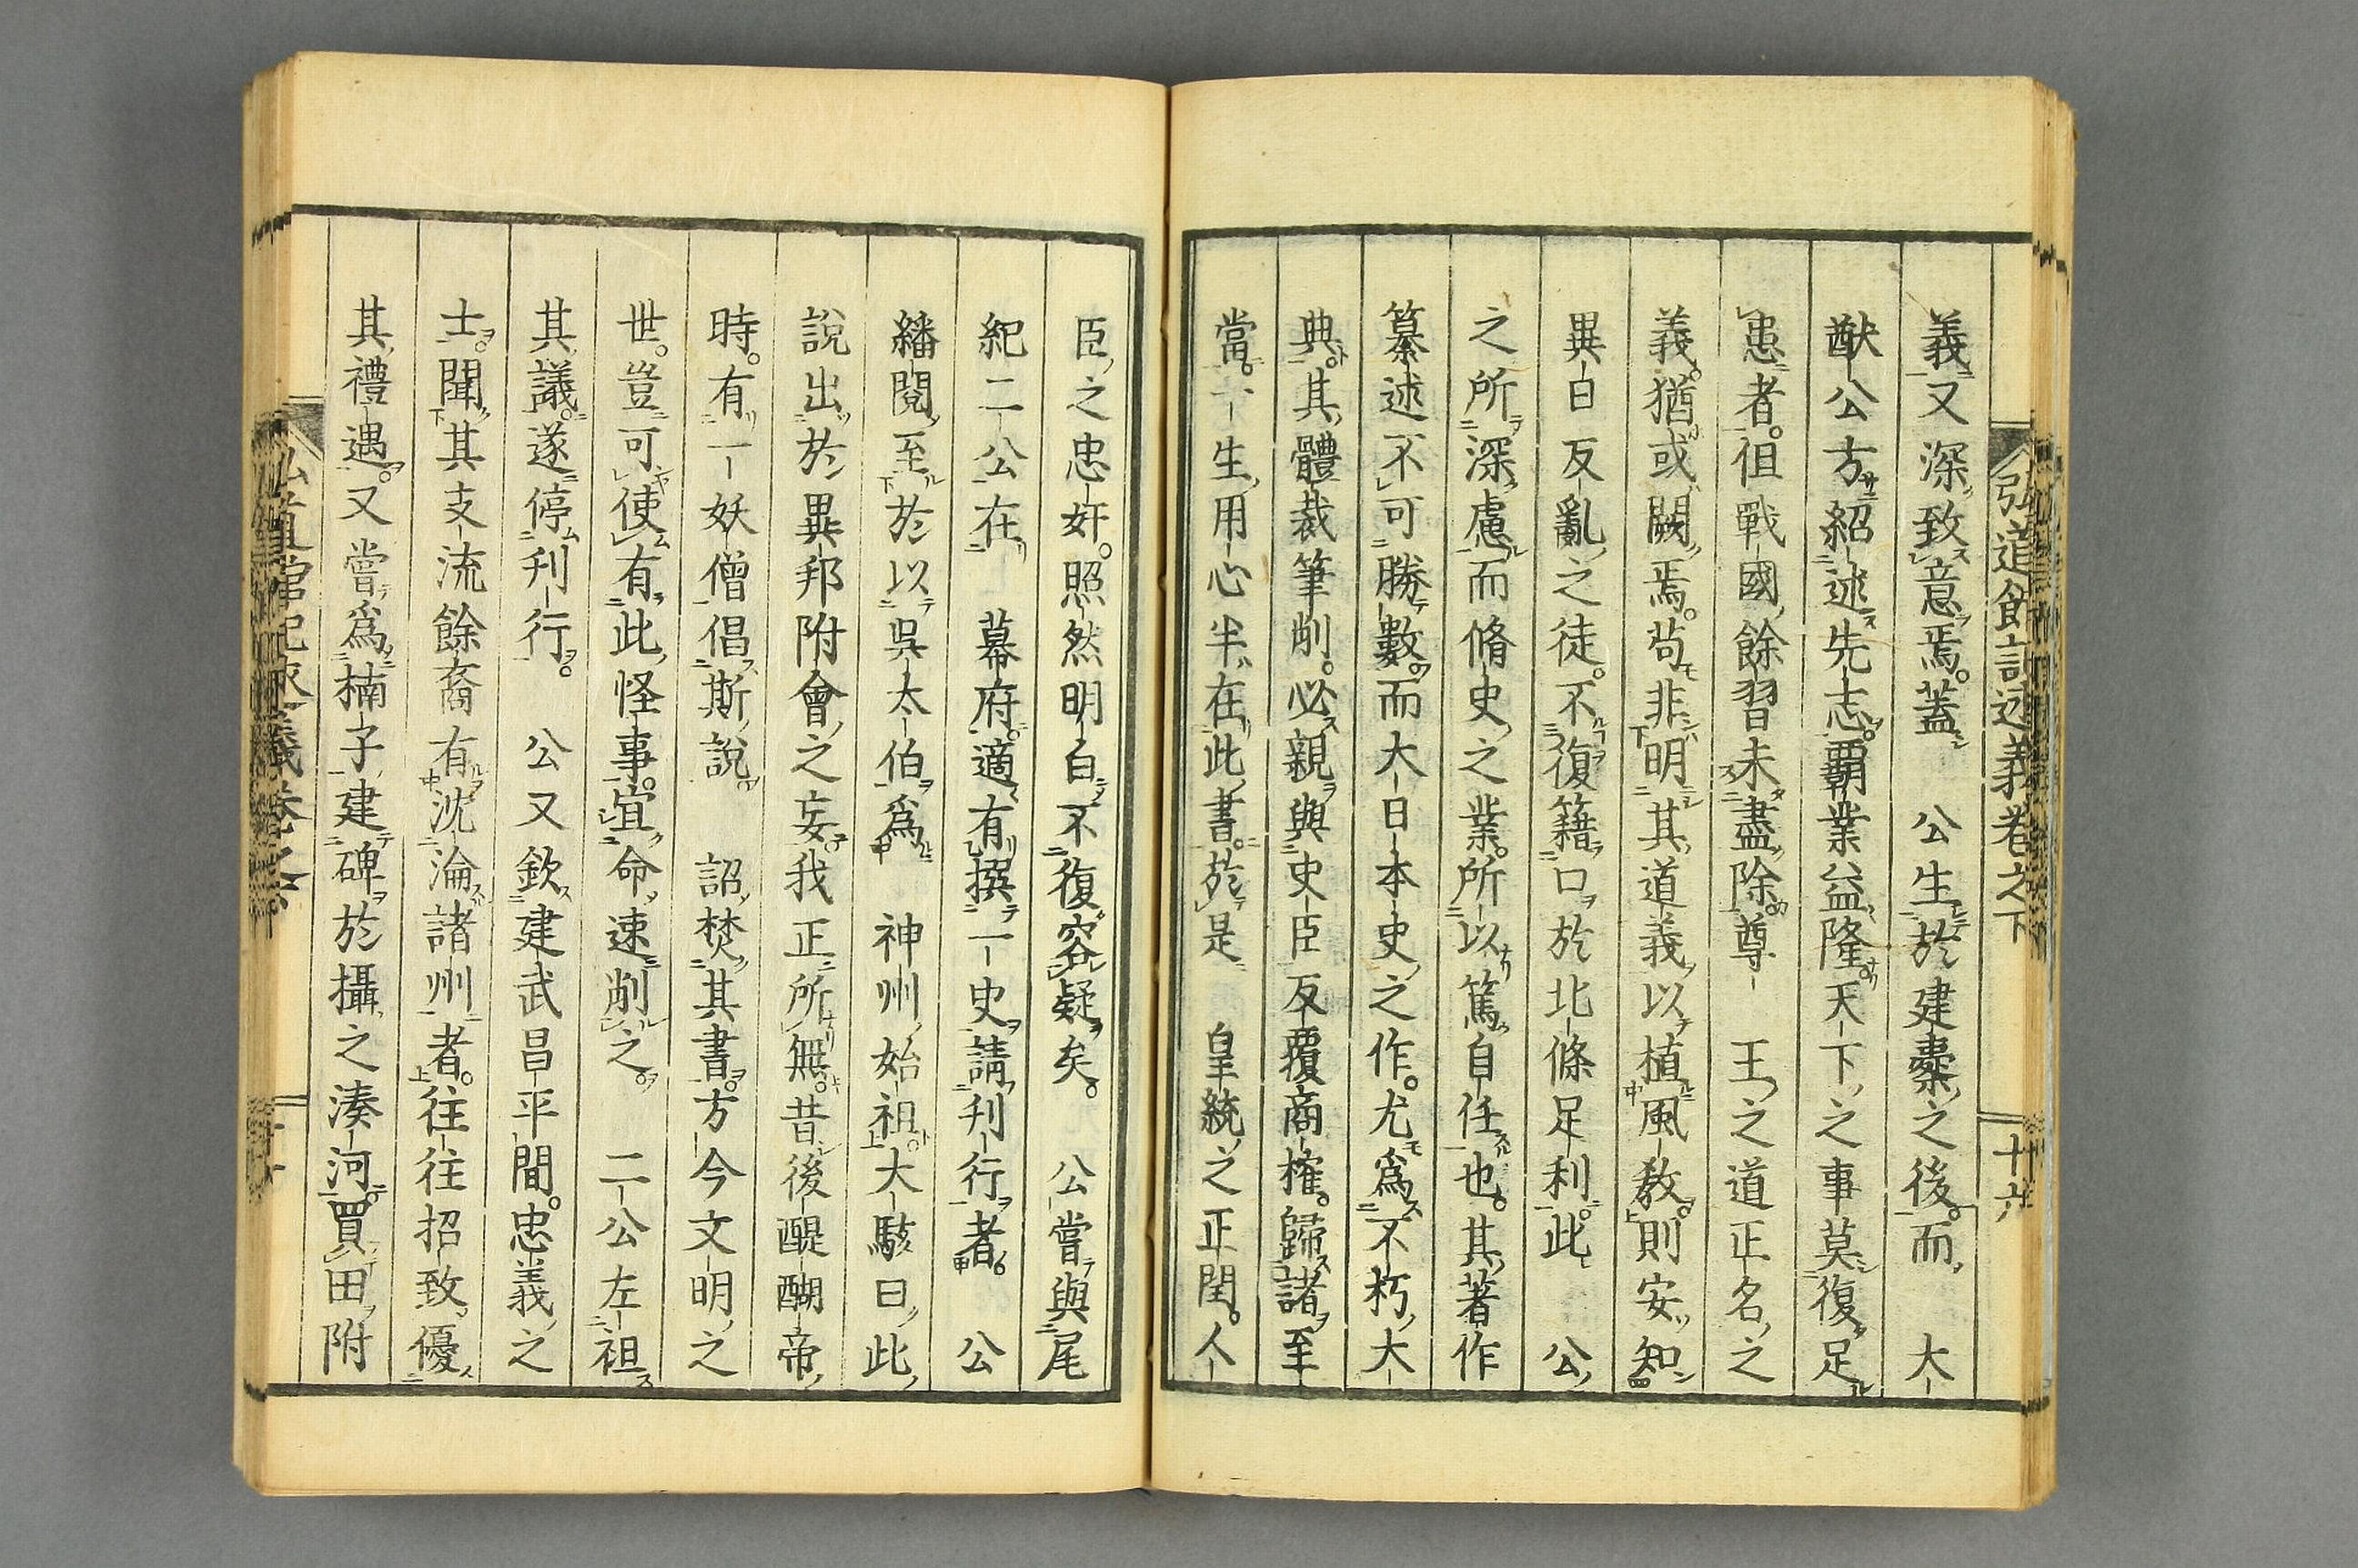 弘道館記述義卷之下
十六
義又深致意焉。蓋　公生於建櫜之後。而　大
猷公方紹述先志。覇業益隆。天下之事莫復足
患者。但戰國餘習未盡除。尊　王之道正名之
義。猶或闕焉。苟非明其道義以植風教。則安知
異日反亂之徒。不復籍口於北條足利。此　公
之所深慮而脩史之業。所以篤自任也。其著作
纂述不可勝數。而大日本史之作。尤爲不朽大
典。其體裁筆削。必親與史臣反覆商搉。歸諸至
當。一生用心半在此書。於是　皇統之正閏。人
臣之忠奸。照然明白不復容疑矣。　公嘗與尾
紀二公在　幕府。適有撰一史請刊行者　公
繙閱至於以吳太伯爲　神州始祖。大駭曰此
說出於異邦附會之妄我正所無。昔後醍醐帝
時。有一妖僧倡斯說　詔焚其書。方今文明之
世。豈可使有此怪事。宜命速削之。　二公左袒
其議。遂停刊行。　公又欽建武昌平間。忠義之
士。聞其支流餘裔有沈淪諸州者。往往招致優
其禮遇。又嘗爲楠子建碑於攝之湊河。買田附